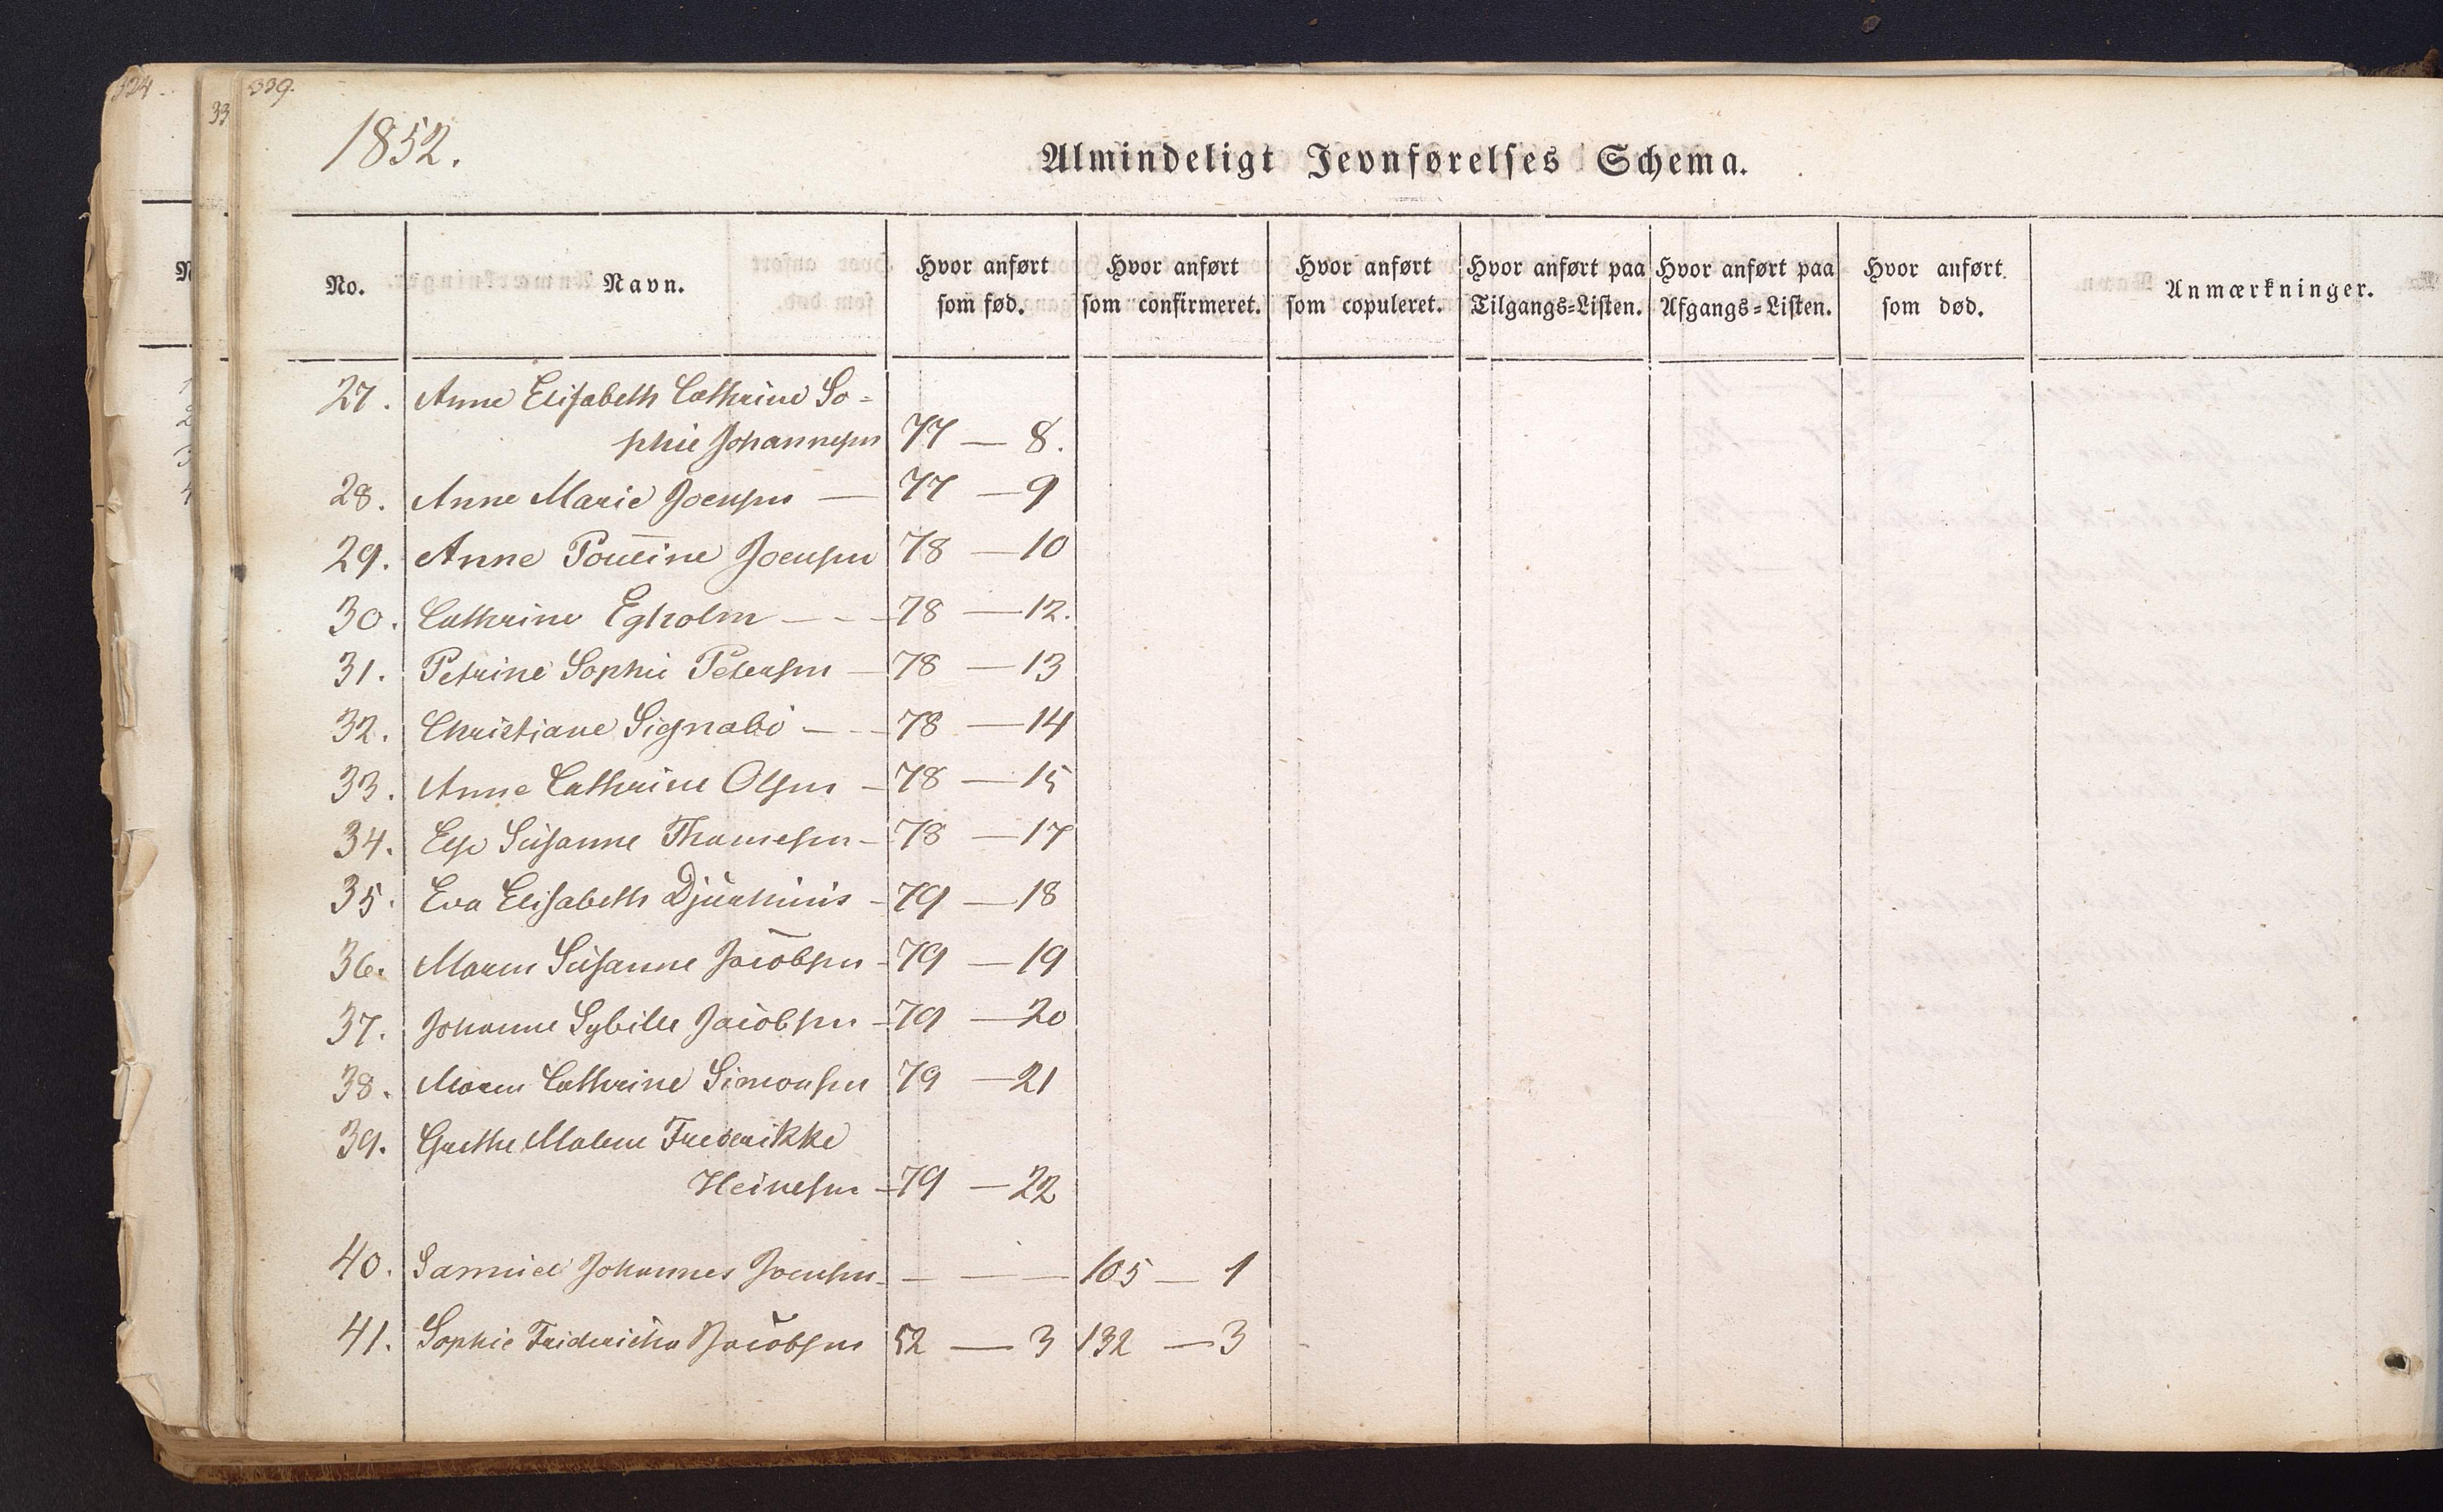 324.
33
339.
1852.
Almindeligt Jevnførelses Schema.
No. Navn. Hvor anført som fød. Hvor anført som confirmeret. Hvor anført som copuleret. Hvor anført paa Tilgangs=Listen. Hvor anført paa Afgangs=Listen. Hvor anført som død. Anmærkninger.
27. Anne Elisabeth Cathrine So=
phie Johannesen 77 — 8.
28. Anne Marie Joensen — 77 — 9
29. Anne Pouline Joensen 78 — 10
30. Cathrine Egholm — - - 78 — 12.
31. Petrine Sophie Petersen — 78 — 13
32. Christiane Signabö — - - 78 — 14
33. Anne Cathrine Olsen - 78 — 15
34. Else Susanne Thomesen - 78 — 17
35. Eva Elisabeth Djurhuus - 79 — 18
36. Maren Susanne Jacobsen - 79 — 19
37. Johanne Sybille Jacobsen - 79 — 20
38. Maren Cathrine Simonsen 79 — 21
39. Grethe Malene Frederikke
Heinesen - 79 — 22
40. Samuel Johannes Joensen - — — — 105 — 1
41. Sophie Fridericha Jacobsen 52 — 3 132 — 3